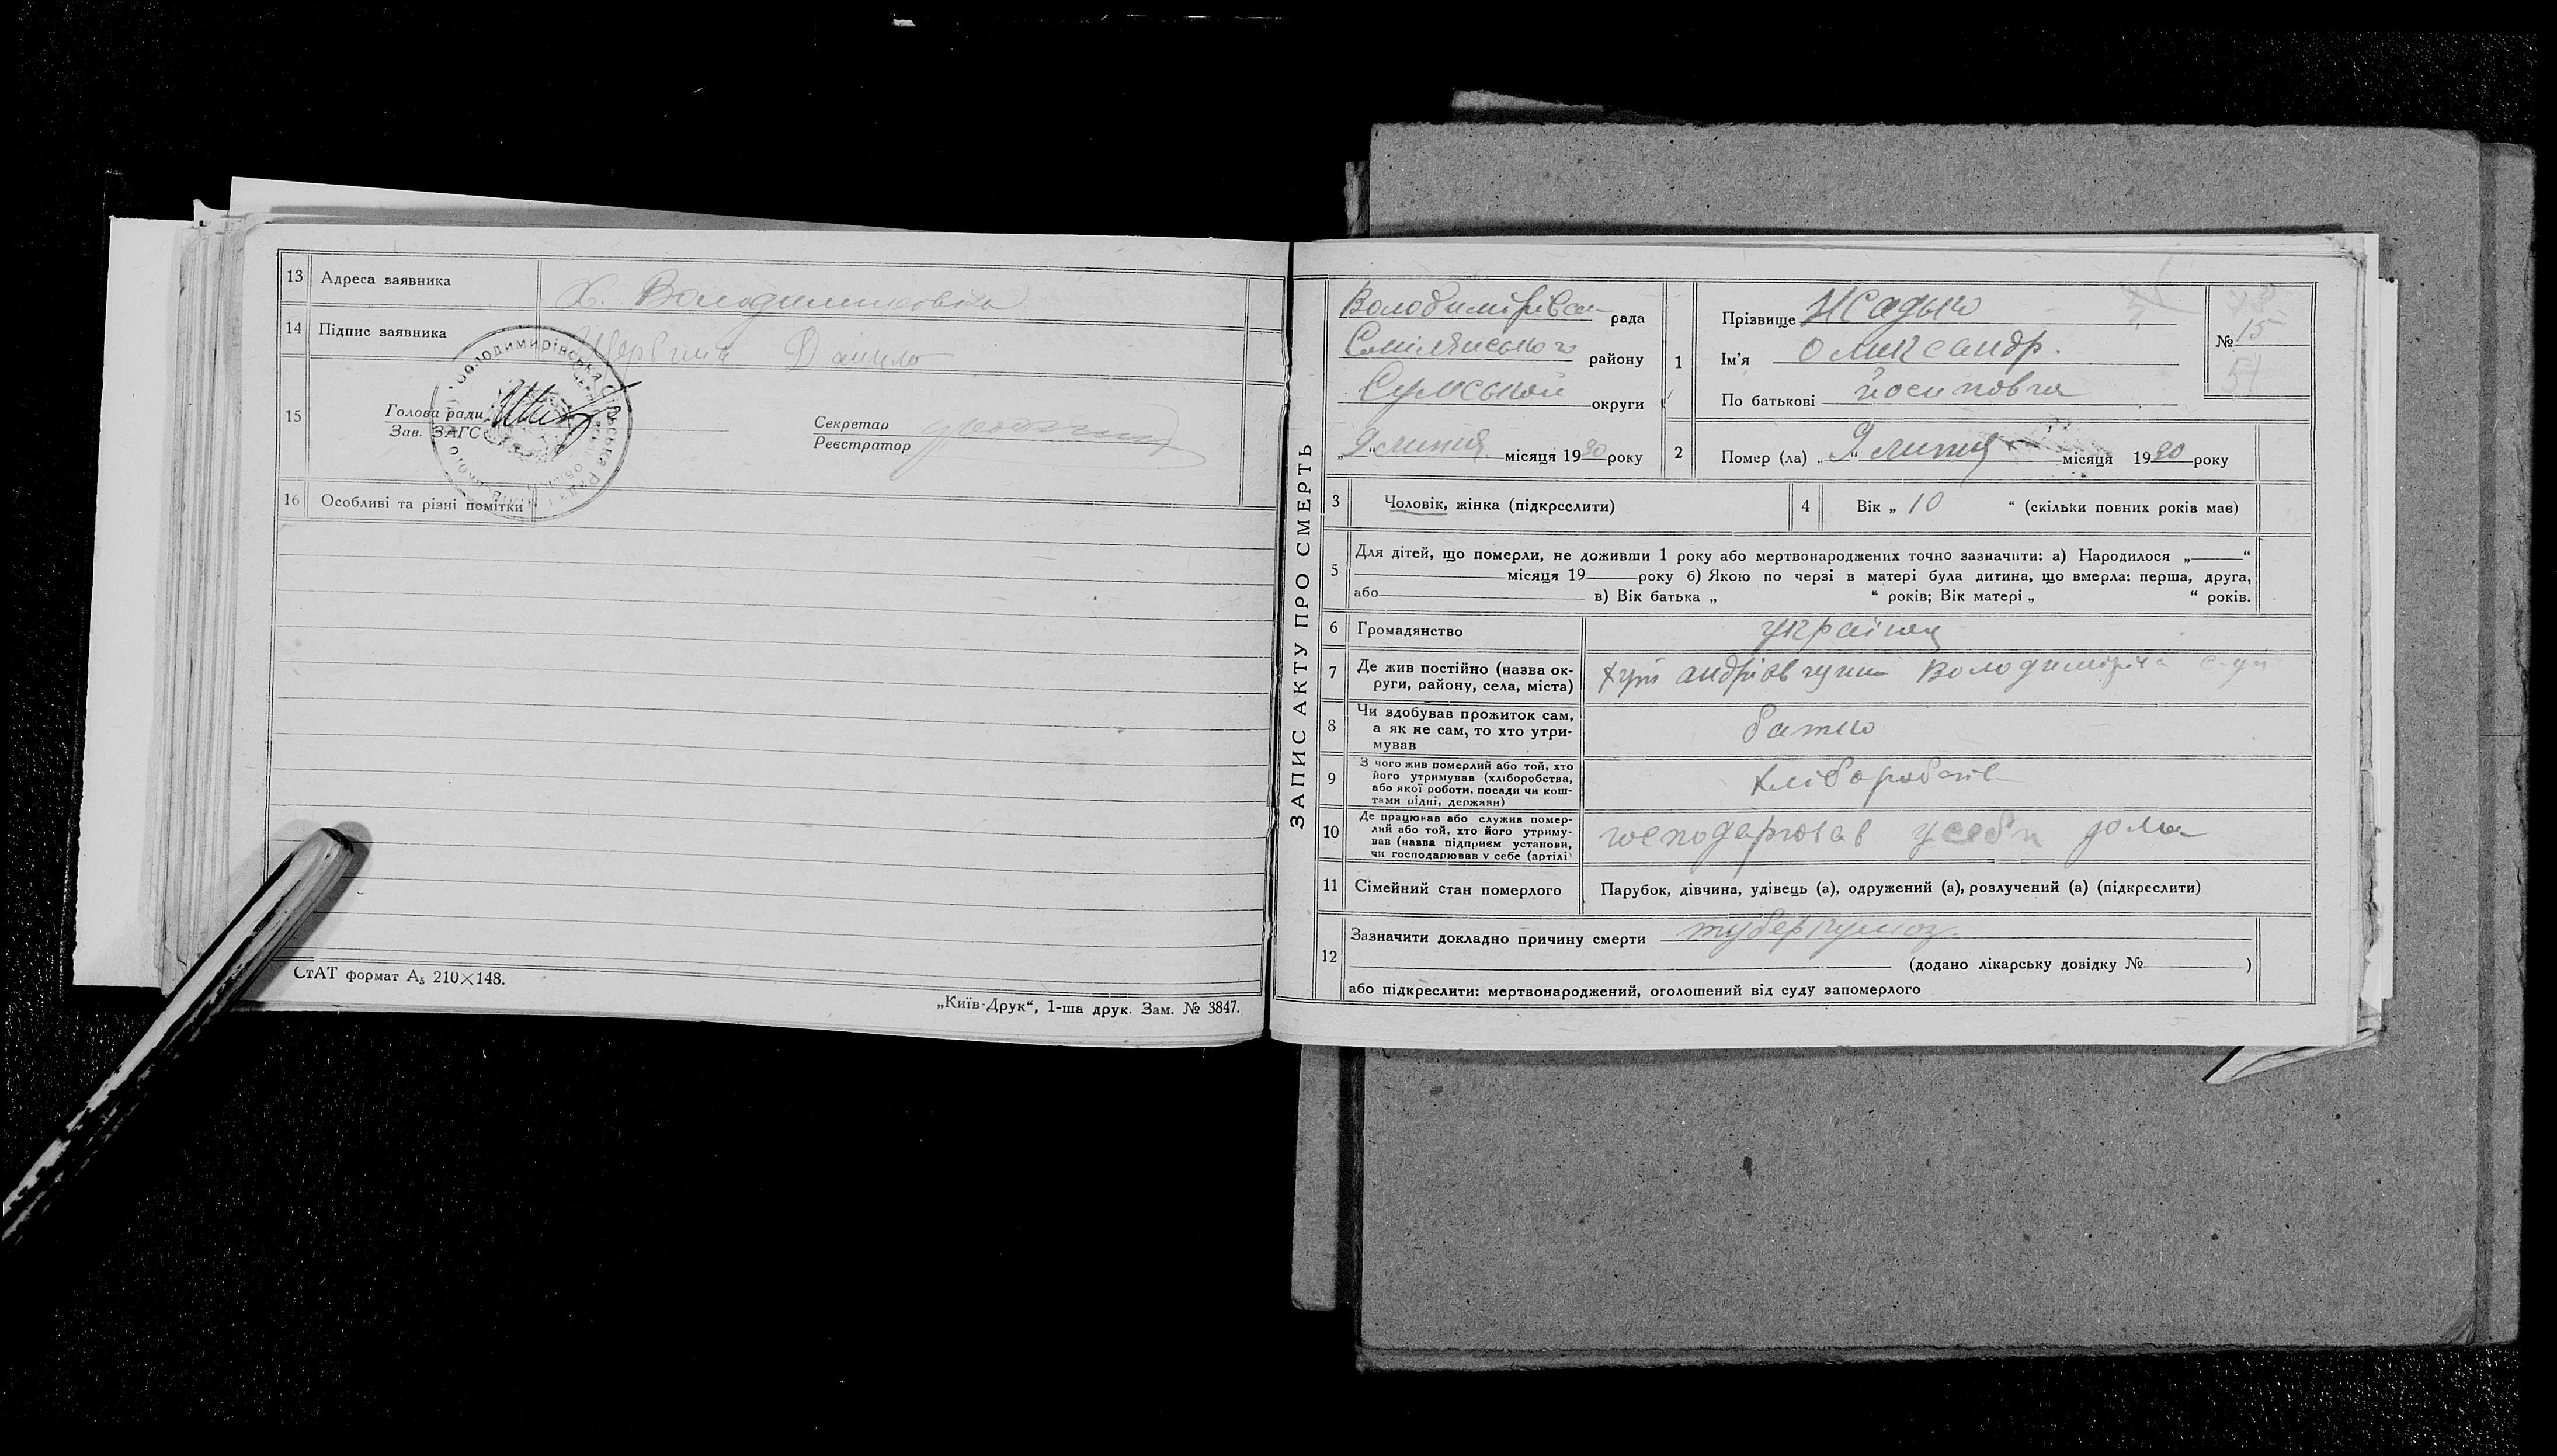 13 Адреса заявника Х. Володимировка
14 Підпис заявника Данило
15 Голова ради
Зав. ЗАГС
Секретар
Реєстратор
16 Особливі та різні помітки
СтАТ формат А₅ 210×148.
„Київ-Друк“, 1-ша друк. Зам. № 3847.
ЗАПИС АКТУ ПРО СМЕРТЬ
рада
району
округи
„9“ липня місяця 1930 року
1 Прізвище
Ім'я Олександр.
По батькові йосипович
№ 15
51
2 Помер (ла) „9“ липня місяця 1930 року
3 Чоловік, жінка (підкреслити)
4 Вік „10“ (скільки повних років має)
5 Для дітей, що померли, не доживши 1 року або мертвонароджених точно зазначити: а) Народилося „——“
місяця 19 року б) Якою по черзі в матері була дитина, що вмерла: перша, друга,
або в) Вік батька „ “ років; Вік матері „ “ років.
6 Громадянство
7 Де жив постійно (назва ок-
руги, району, села, міста)
8 Чи здобував прожиток сам,
а як не сам, то хто утри-
мував
батько
9 З чого жив померлий або той, хто
його утримував (хліборобства,
або якої роботи, посади чи кош-
тами рідні, держави)
10 Де працював або служив помер-
лий або той, хто його утриму-
вав (назва підприєм установи,
чи господарював у себе (артілі)
господарював усебя дома
11 Сімейний стан померлого Парубок, дівчина, удівець (а), одружений (а), розлучений (а) (підкреслити)
12 Зазначити докладно причину смерти туберкульоз.
(додано лікарську довідку № )
або підкреслити: мертвонароджений, оголошений від суду запомерлого